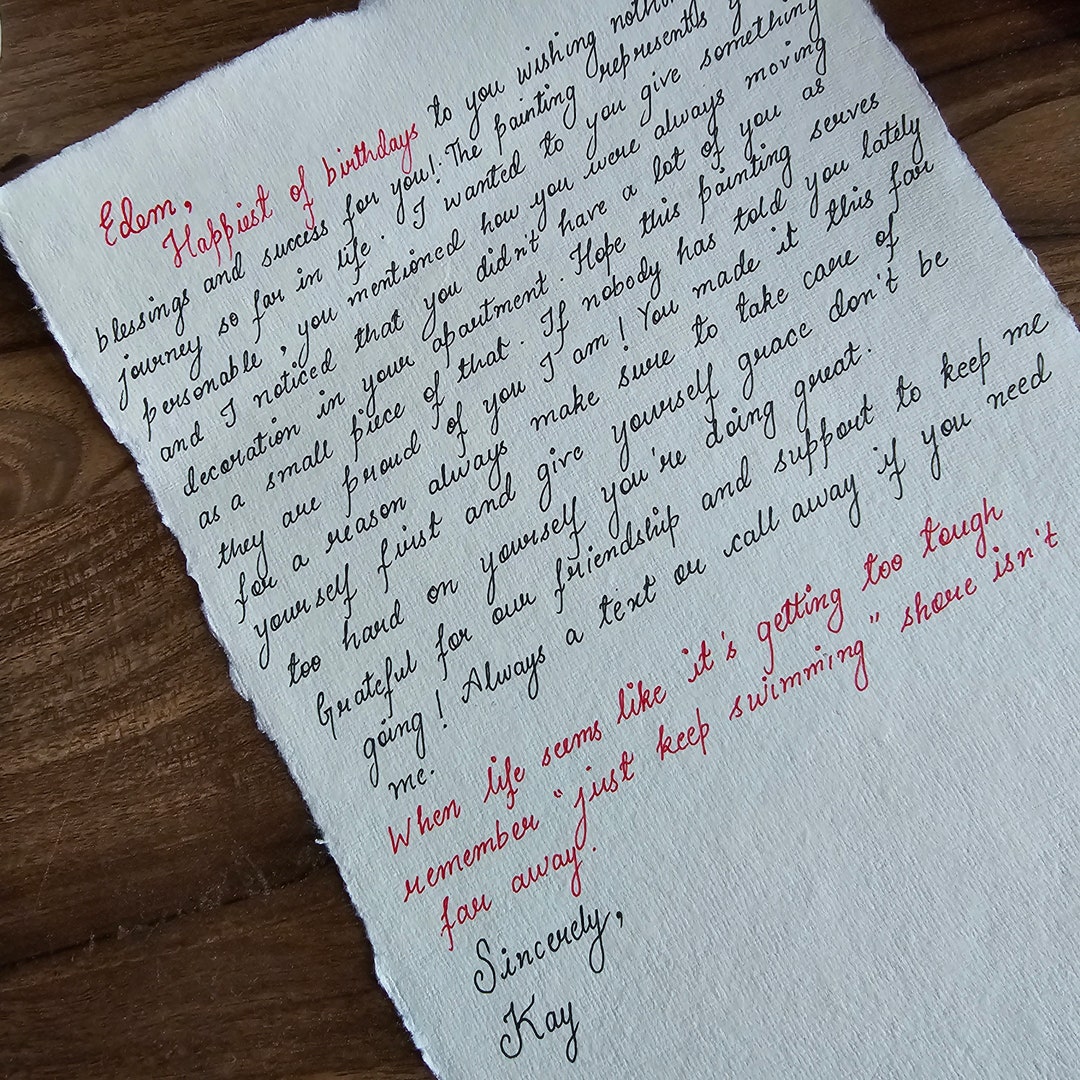 Edem,
Happiest of birthdays to you wishing
blessings and success for you! The painting represents
journey so far in life. I wanted to you give something
personable, you mentioned how you were always moving
and I noticed that you didn't have a lot of you as
decoration in your apartment. Hope this painting serves
as a small piece of that. If nobody has told you lately
they are proud of you I am! You made it this far
for a reason always make sure to take care of
yourself first and give yourself grace don't be
too hard on yourself you're doing great.
Grateful for our friendship and support to keep me
going! Always a text or call away if you need
me.
When life seems like it's getting too tough
remember "just keep swimming" shore isn't
far away.
Sincerely,
Kay